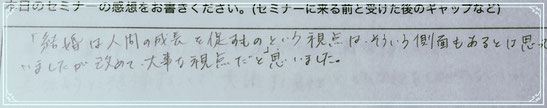 本日のセミナーの感想をお書きください。(セミナーに来る前と受けた後のギャップなど)
「結婚は人間の成長を促すものという視点は、そういう側面もあるとは思って
いましたが改めて、大事な視点だと思いました。